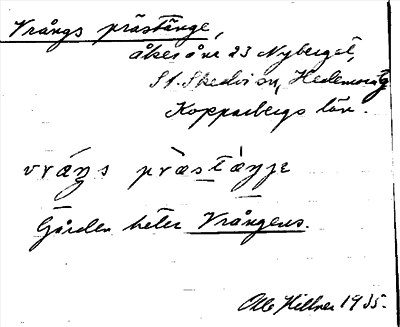 Vrångs prästänge,
åker å nr 23 Nyberget,
St. Skedvi sn, Hedemora
Kopparbergs län.
vráŋs præ̀stæ̀ŋje
Gården heter Vrångens.
Olle Hillner 1935.